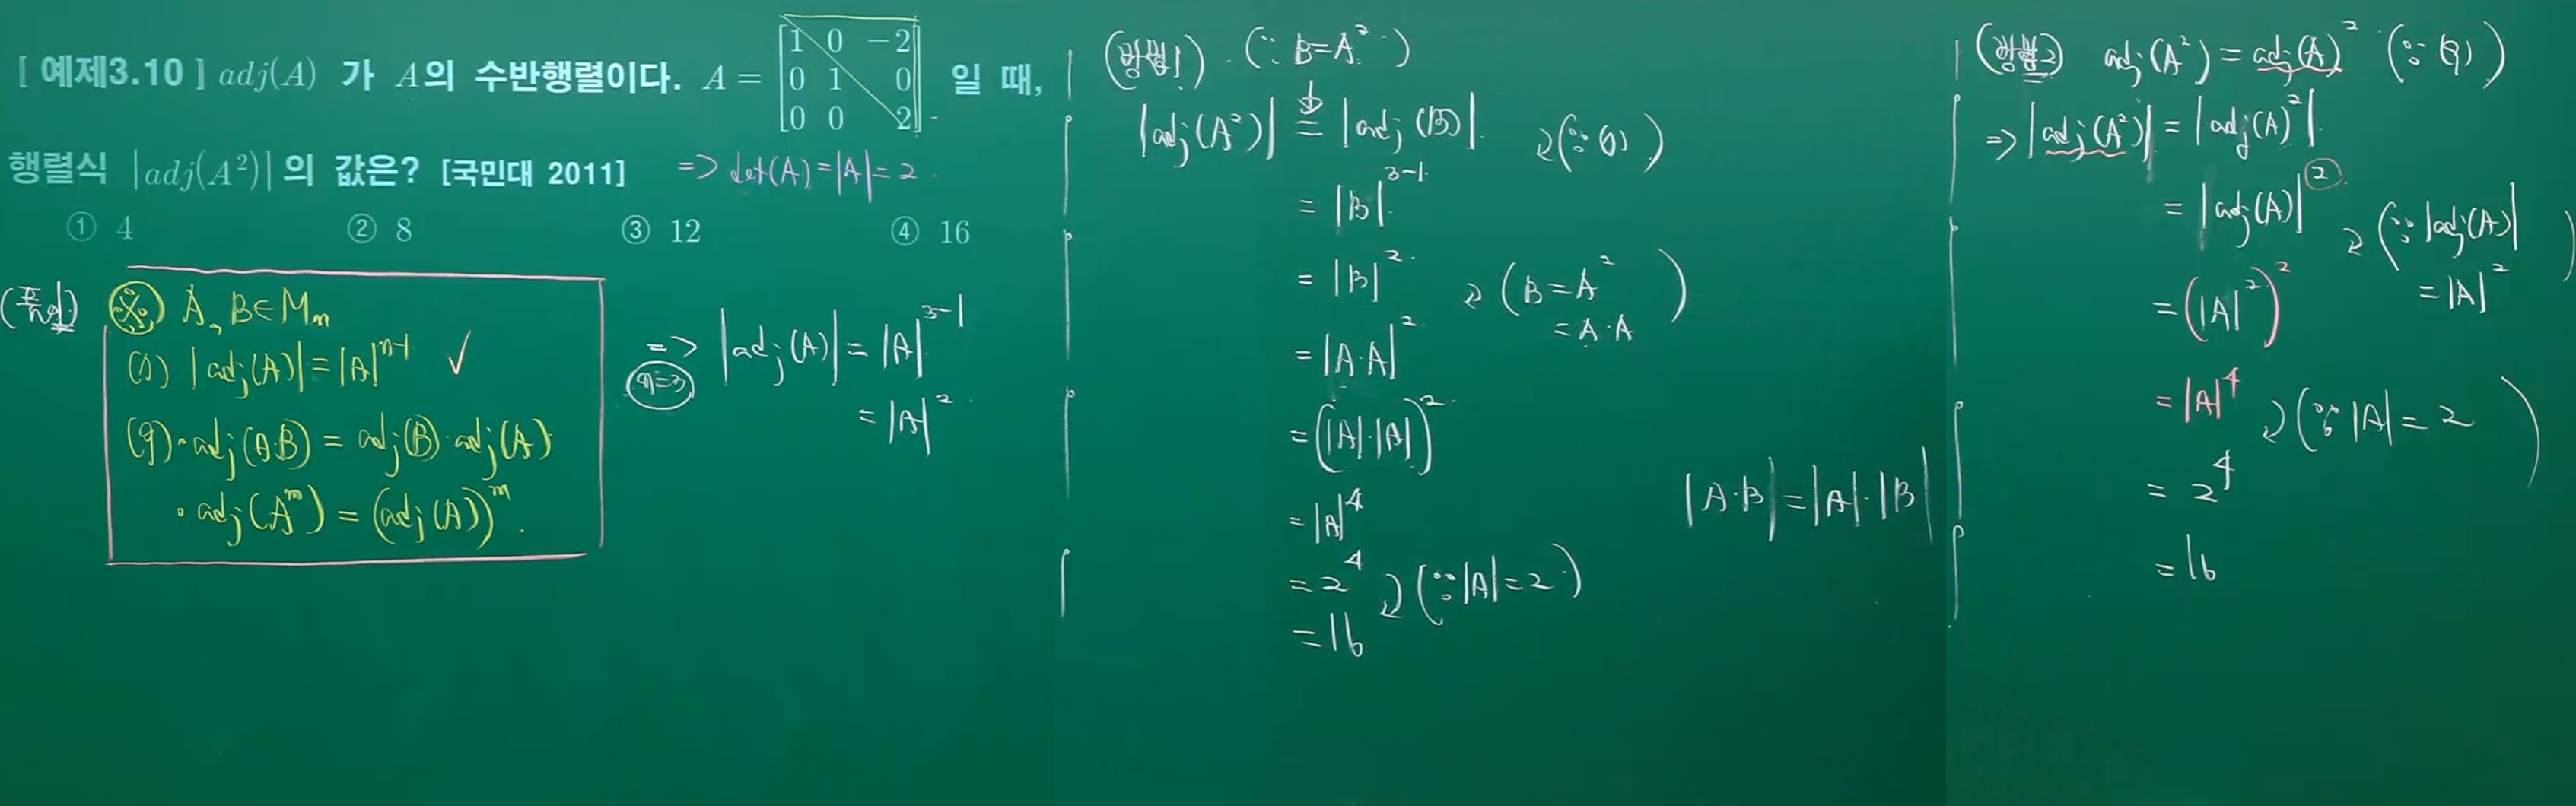 [ 예제3.10 ] adj(A) 가 A의 수반행렬이다. A = [1 0 −2; 0 1 0; 0 0 2] 일 때,
행렬식 |adj(A²)|의 값은? [국민대 2011] => det(A)=|A|=2
① 4 ② 8 ③ 12 ④ 16
(풀이) ※ A, B∈Mn
(1) |adj(A)|=|A|ⁿ⁻¹ ✓
(9)·adj(A·B) = adj(B)·adj(A)
·adj(Aᵐ) = (adj(A))ᵐ.
=> (n=3) |adj(A)| = |A|³⁻¹
= |A|²
(방법1) (∵ B=A²)
|adj(A²)| = |adj(B)|
= |B|³⁻¹ (∵ (1))
= |B|²
= |A·A|² (B=A² = A·A)
= (|A|·|A|)²
= |A|⁴
= 2⁴ (∵ |A|=2)
= 16
|A·B| = |A|·|B|
(방법2) adj(A²) = adj(A)² (∵ (9))
=> |adj(A²)| = |adj(A)²|
= |adj(A)|²
= (|A|²)² (∵ |adj(A)| = |A|²)
= |A|⁴
= 2⁴ (∵ |A| = 2)
= 16